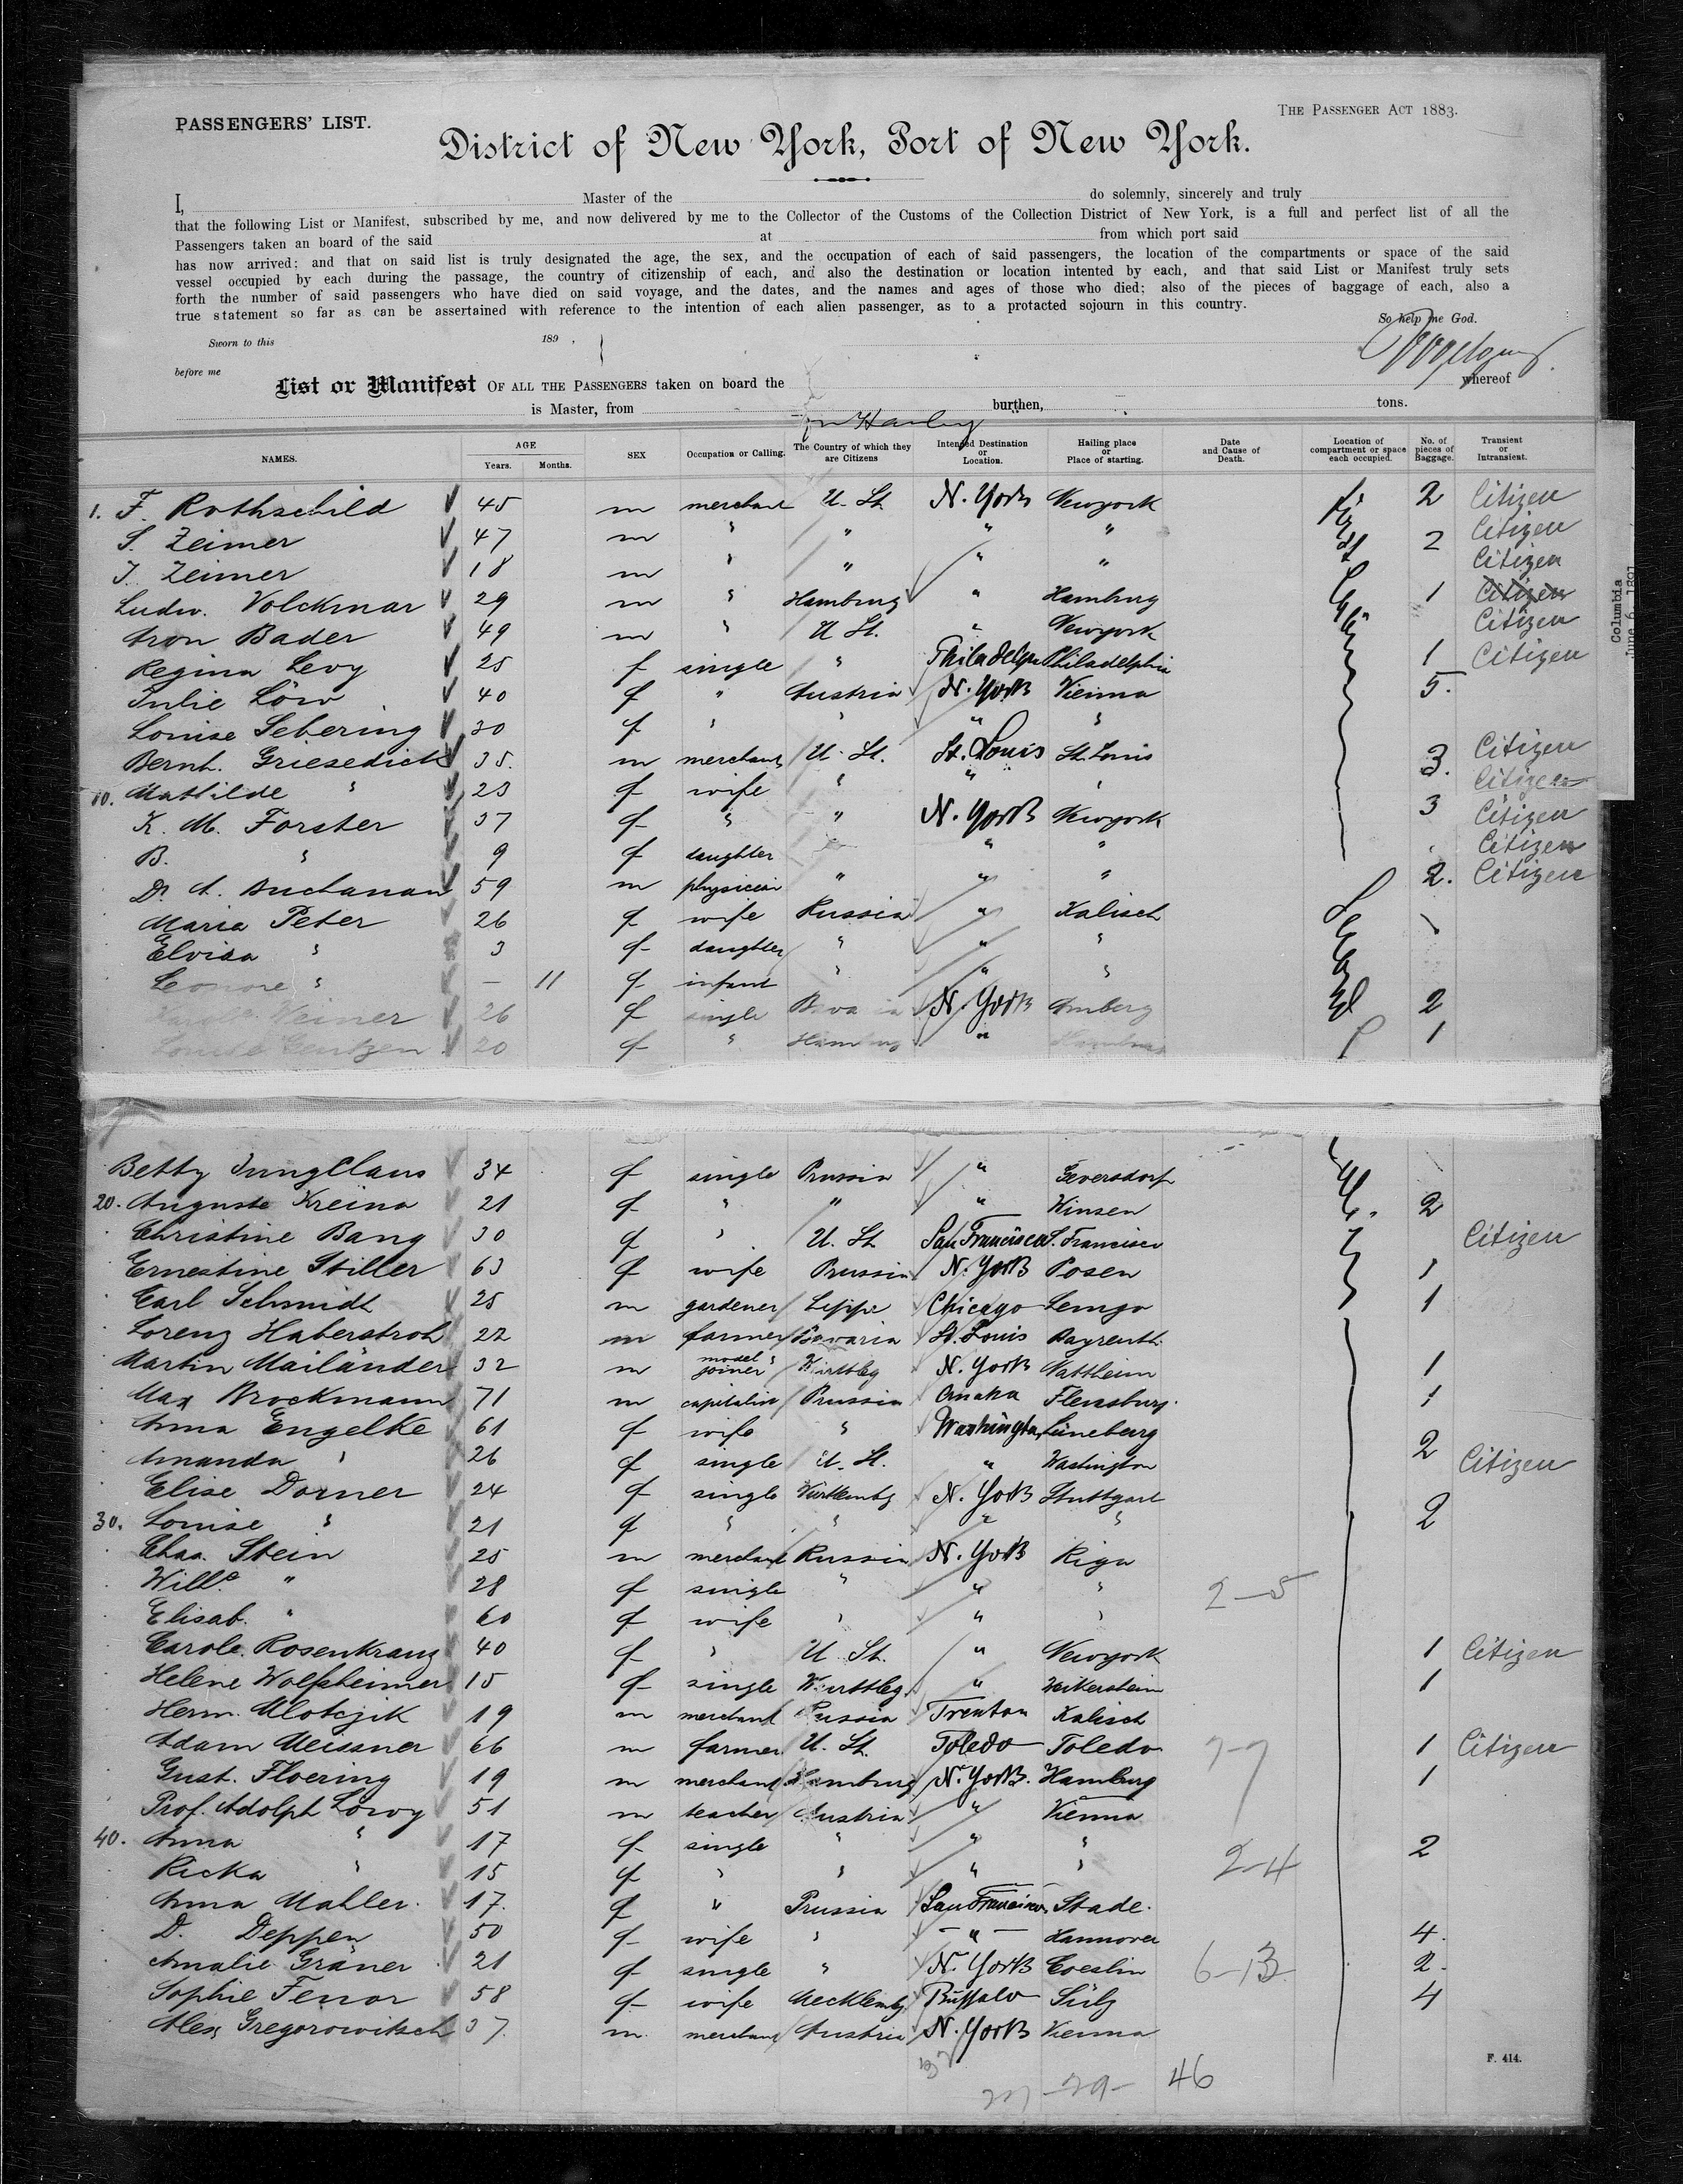 PASSENGERS' LIST.
THE PASSENGER ACT 1883.
District of New York, Port of New York.
I, Master of the do solemnly, sincerely and truly
that the following List or Manifest, subscribed by me, and now delivered by me to the Collector of the Customs of the Collection District of New York, is a full and perfect list of all the
Passengers taken an board of the said at from which port said
has now arrived; and that on said list is truly designated the age, the sex, and the occupation of each of said passengers, the location of the compartments or space of the said
vessel occupied by each during the passage, the country of citizenship of each, and also the destination or location intented by each, and that said List or Manifest truly sets
forth the number of said passengers who have died on said voyage, and the dates, and the names and ages of those who died; also of the pieces of baggage of each, also a
true statement so far as can be assertained with reference to the intention of each alien passenger, as to a protacted sojourn in this country.
So help me God.
Sworn to this 189 ,
before me
List or Manifest OF ALL THE PASSENGERS taken on board the whereof
is Master, from burthen, tons.
NAMES. AGE Years. Months. SEX Occupation or Calling. The Country of which they are Citizens Intended Destination or Location. Hailing place or Place of starting. Date and Cause of Death. Location of compartment or space each occupied. No. of pieces of Baggage. Transient or Intransient.
1. F. Rothschild 45 m merchant U. St. N. York Newyork 2 Citizen
S. Zeimer 47 m " " " " 2 Citizen
J. Zeimer 18 m " " " " Citizen
Ludw. Volckmar 29 m " Hamburg " Hamburg 1 Citizen
Aron Bader 49 m " U St. " Newyork Citizen
Regina Levy 25 f single " Philadelph Philadelphia 1 Citizen
Julie Löw 40 f " Austria N. York Vienna 5.
Louise Sebering 30 f " " " "
Bernh. Griesedick 35. m merchant U. St. St. Louis St. Louis 3. Citizen
10. Mathilde " 23 f wife " " " Citizen
K. M. Forster 37 f " " N. York Newyork 3 Citizen
B. " 9 f daughter " " " Citizen
Dr. A. Buchanan 59 m physician " " " 2. Citizen
Maria Peter 26 f wife Russia " Kalisch
Elvisa " 3 f daughter " " "
Leonore " — 11 f infant " " "
Weiner 26 f single Bavaria N. York Amberg 2
Louise Gentzen 20 f " Hamburg " Hamburg 1
Betty Jungclaus 34 f single Prussia " Geversdorf
20. Auguste Kreina 21 f " " " Winsen 2
Christine Bang 30 f " U. St. San Francisco S. Francisco Citizen
Ernestine Stiller 63 f wife Prussia N. York Posen 1
Carl Schmidt 25 m gardener Lippe Chicago Lemgo 1
Lorenz Haberstroh 22 m farmer Bavaria St. Louis Bayreuth
Martin Mailänder 32 m model joiner Württbg N. York Nattheim 1
Max Brockmann 71 m capitalist Prussia Omaha Flensburg. 1
Anna Engelke 61 f wife " Washington Lüneburg 2
Amanda " 26 f single U. St. " Washington Citizen
Elise Dorner 24 f single Württembg N. York Stuttgart
30. Louise " 21 f " " " " 2
Chas. Stein 25 m merchant Russia N. York Riga
Willa " 28 f single " " " 2-5
Elisab. " 60 f wife " " "
Carole. Rosenkranz 40 f " U St. " Newyork 1 Citizen
Helene Wolfsheimer 15 f single Württbg. " Weikersheim 1
Herm. Mlotczik 19 m merchant Russia Trenton Kalisch
Adam Meissner 66 m farmer U. St. Toledo Toledo 7-7 1 Citizen
Gust. Floering 19 m merchant Hamburg N. York. Hamburg 1
Prof. Adolph Löwy 51 m teacher Austria " Vienna
40. Anna " 17 f single " " " 2
Ricka " 15 f " " " " 2-4
Anna Mahler. 17. f " Prussia San Francisco Stade.
D. Deppen 50 f wife " — " — Hannover 4.
Amalie Gräner 21 f single " N. York Coeslin 6-13 2.
Sophie Fenor 58 f wife Mecklenbg. Buffalo Sülz 4
Alex Gregorowitsch 37. m. merchant Austria N. York Vienna
29- 46
F. 414.
Columbia
June 6, 1891